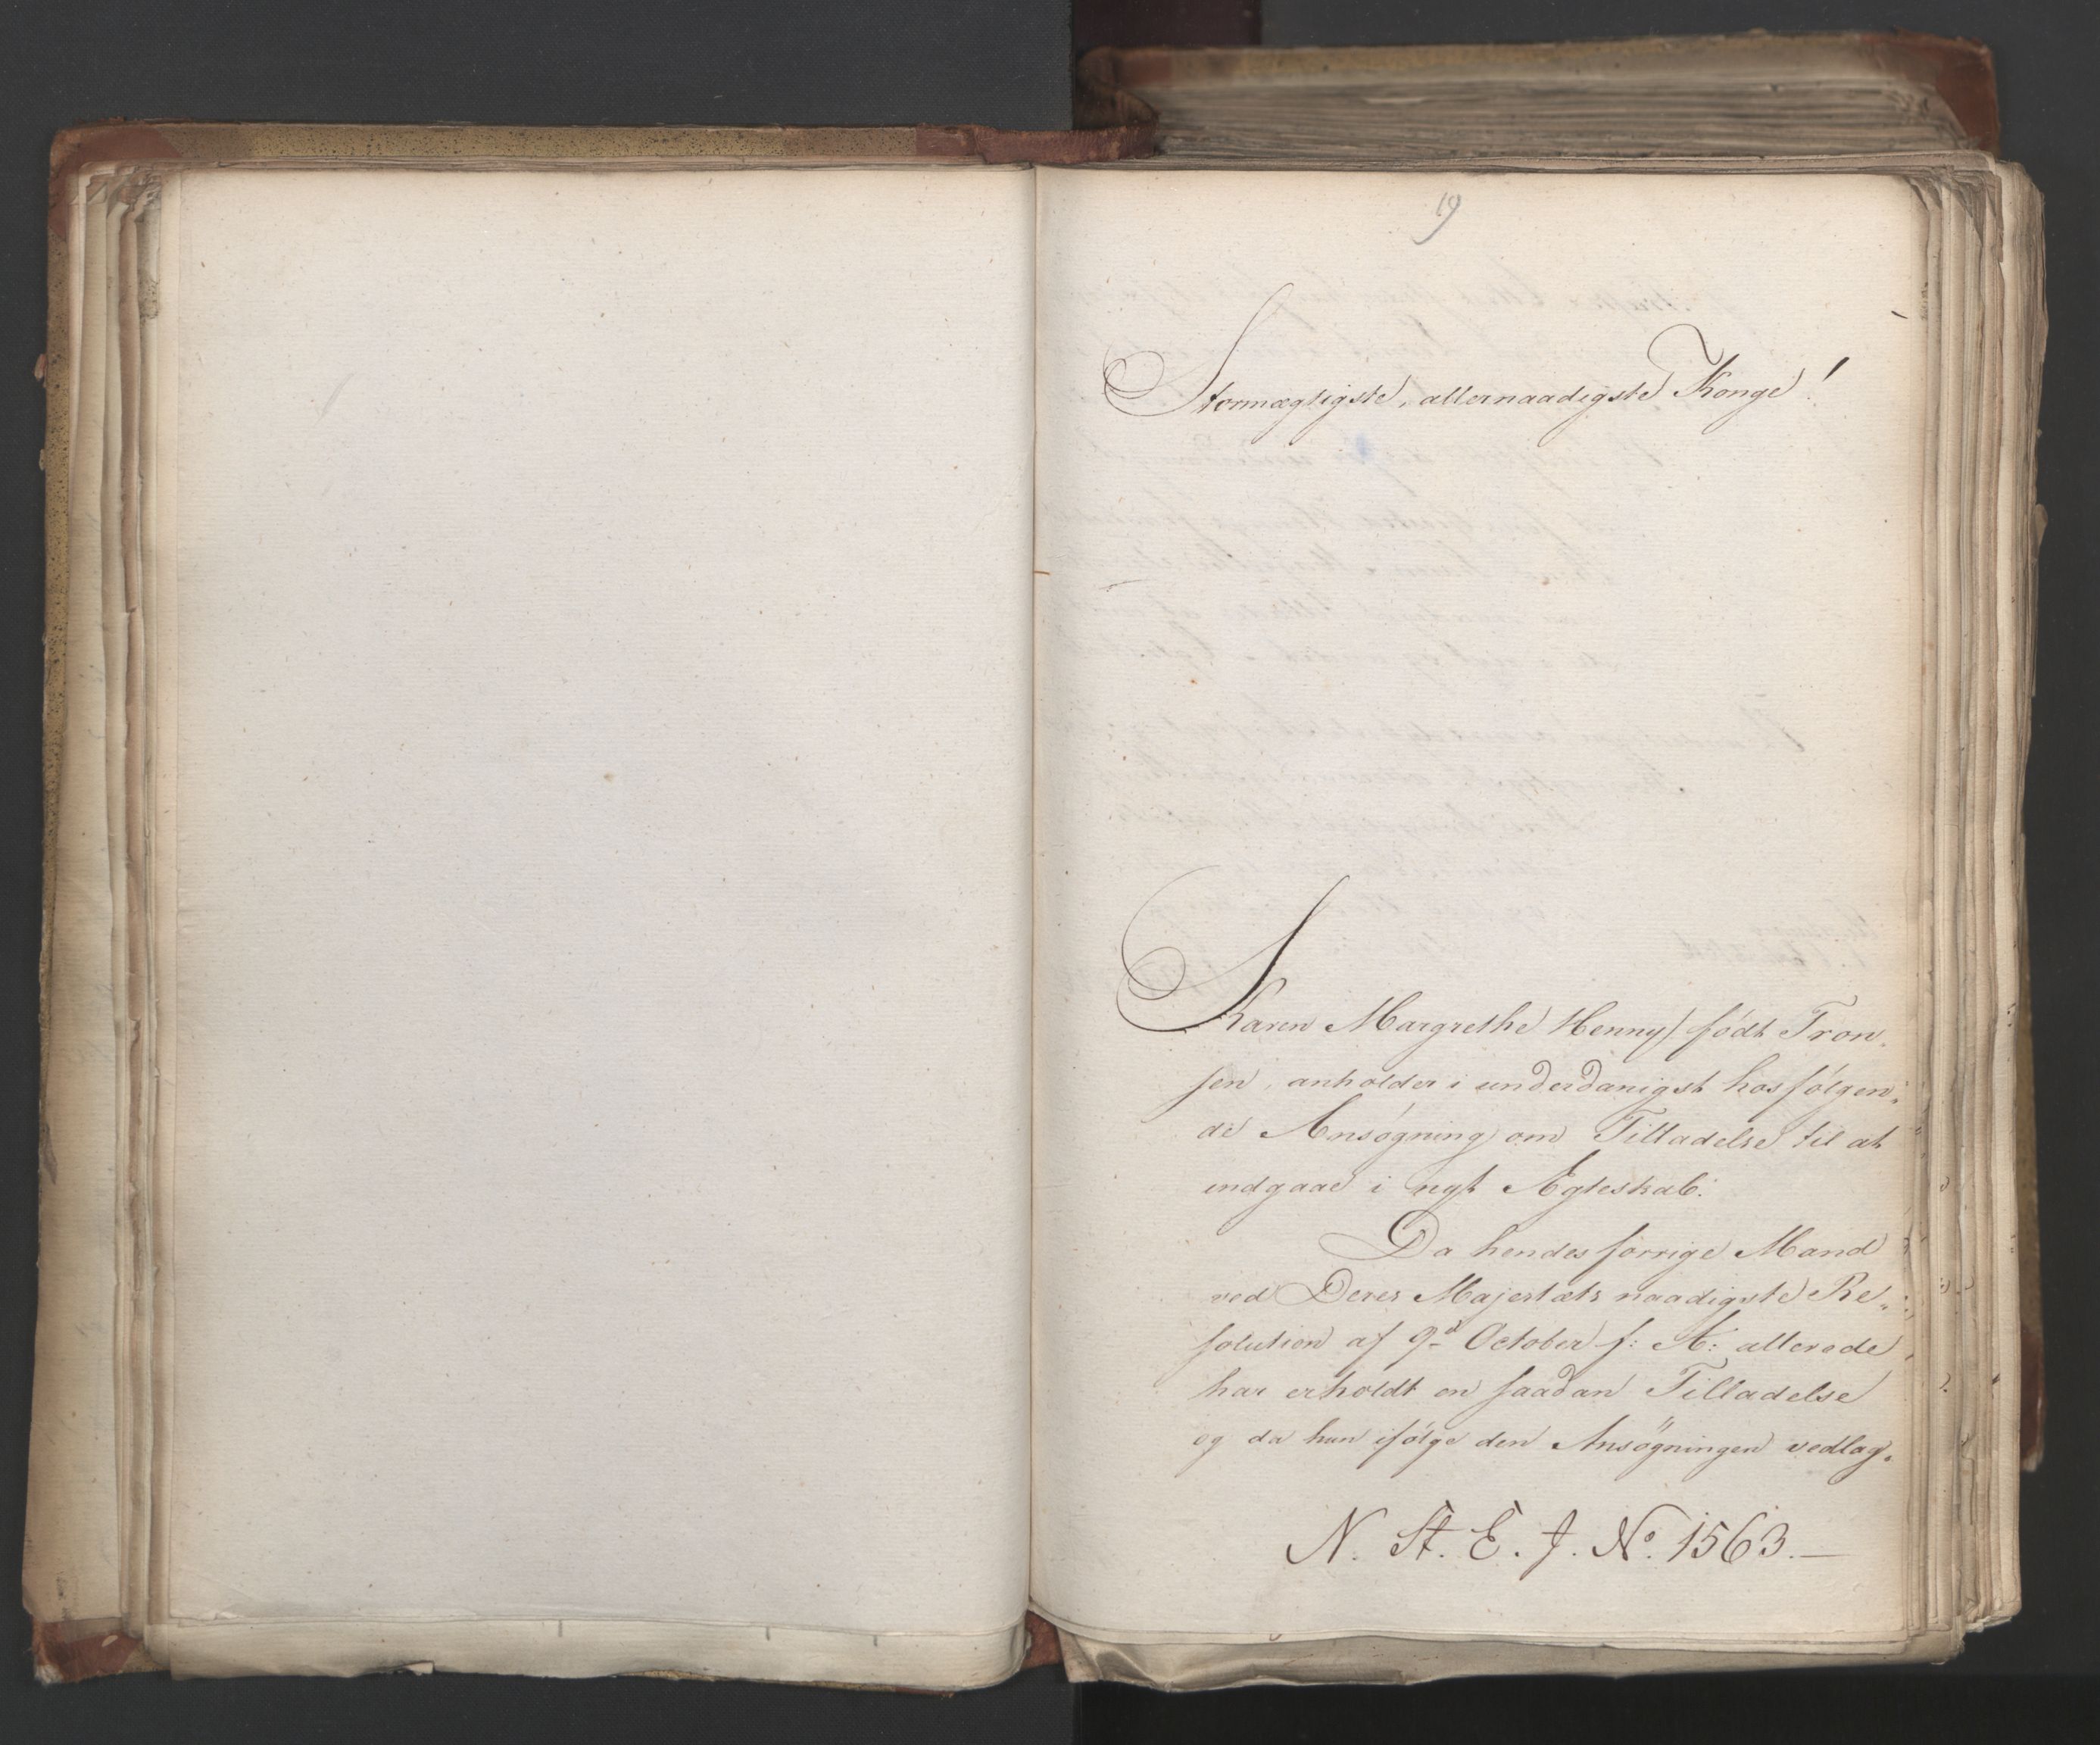 19
Stormægtigste, allernaadigste Konge!
Karen Margrethe Henny, født Tron„
sen, anholder i underdanigst hosfølgen„
de Ansøgning om Tilladelse til at
indgaae i nyt Ægteskab.
Da hendes forrige Mand
ved Deres Majestæts naadigste Re„
solution af 9d October f: A: allerede
har erholdt en saadan Tilladelse
og da hun ifølge den Ansøgningen vedlag„
N. St. E. J. No. 1563.—